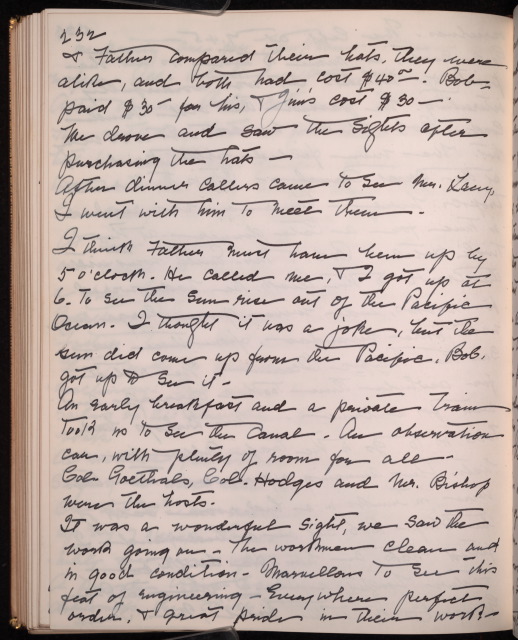 232
& Father compared their hats, they were
alike, and both had cost $40—. Bob
paid $30— for his, & Jim's cost $30—
We drove and saw the sights after
purchasing the hats—
After dinner callers came to see Mr.
I went with him to meet them—.
I think Father must have been up by
5 o'clock. He called me, & I got up at
6. To see the sun rise out of the Pacific
Ocean. I thought it was a joke, but the
sun did come up from the Pacific. Bob.
got up to see it—
An early breakfast and a private train
took us to see the Canal. An observation
car, with plenty of room for all—
Col. Goethals, Col. Hodges and Mr. Bishop
were the hosts.
It was a wonderful sight, we saw the
work going on— The workmen clean and
in good condition— Marvellous to see this
feat of engineering— Everywhere perfect
order, & great pride in their work